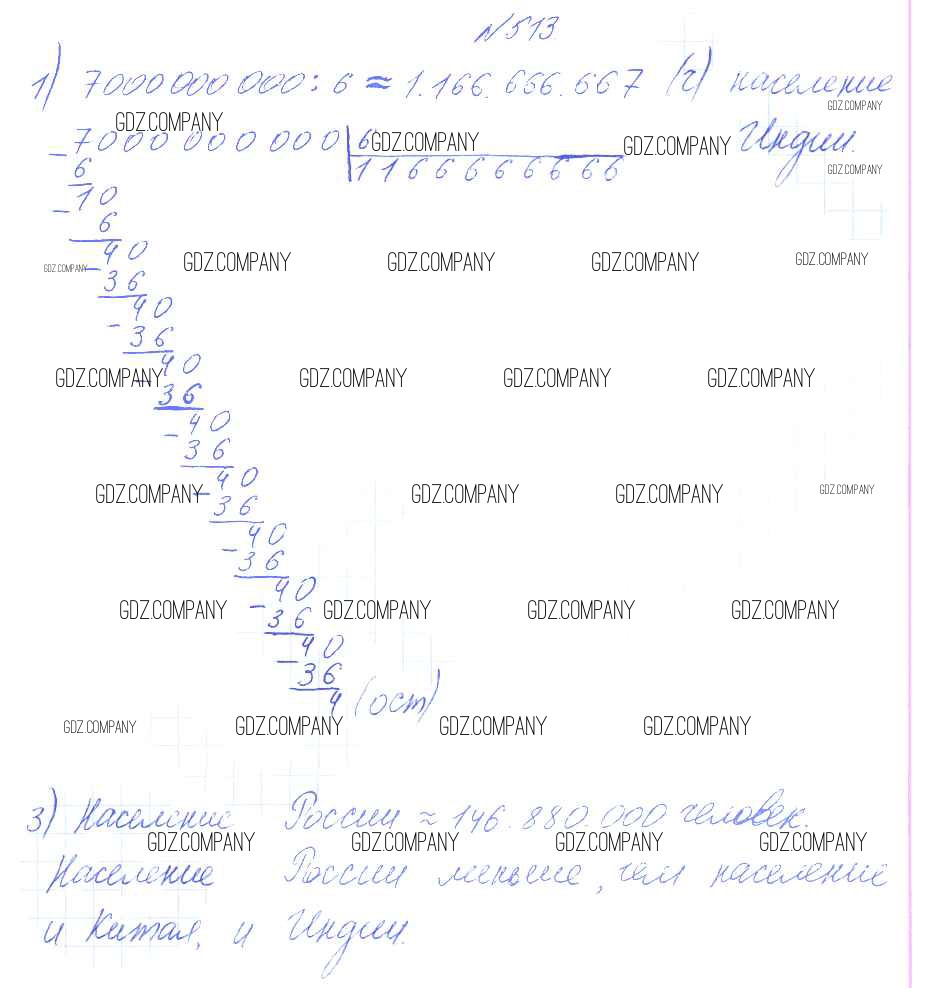 N513
1) 7000 000 000 : 6 ≈ 1.166.666.667 (ч) население
GDZ.COMPANY
GDZ.COMPANY
7000 000 000 6 GDZ.COMPANY GDZ.COMPANY Индии.
6 1166666666 GDZ.COMPANY
10
6
40 GDZ.COMPANY GDZ.COMPANY GDZ.COMPANY GDZ.COMPANY
GDZ.COMPANY 36
40
36
40
GDZ.COMPANY GDZ.COMPANY GDZ.COMPANY GDZ.COMPANY
36
40
36
40
GDZ.COMPANY GDZ.COMPANY GDZ.COMPANY GDZ.COMPANY
36
40
36
40
GDZ.COMPANY GDZ.COMPANY GDZ.COMPANY GDZ.COMPANY
36
40
36
4 (ост)
GDZ.COMPANY GDZ.COMPANY GDZ.COMPANY GDZ.COMPANY
3) Население России ≈ 146.880.000 человек.
GDZ.COMPANY GDZ.COMPANY GDZ.COMPANY GDZ.COMPANY
Население России меньше, чем население
и Китая, и Индии.